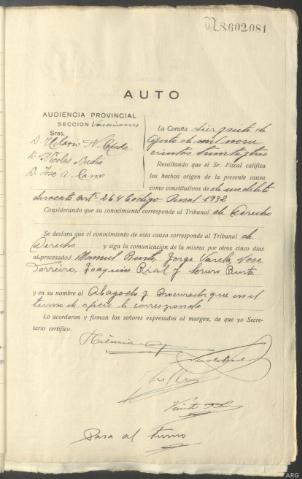 N8.602.081
AUTO
AUDIENCIA PROVINCIAL
SECCION Vacaciones
Sres.
D. Hilario N.
D. Nicolas
D. José A. Cano
La Coruña diez y siete de
Agosto de mil nove
cientos treinta y tres
Resultando que el Sr. Fiscal califica
los hechos origen de la presente causa
como constitutivos de de un delito
art. 264 Código Penal 1932
Considerando que su conocimiento corresponde al Tribunal de Derecho
Se declara que el conocimiento de esta causa corresponde al Tribunal de
Derecho y siga la comunicación de la misma por otros cinco días
al procesados Manuel Jorge Varela José
Ferreiro, Joaquín Rial y
y en su nombre al Abogado y Procurador que en el
turno de oficio le corresponda
Lo acordaron y firman los señores expresados al margen, de que yo Secre-
tario certifico.
Pasa al turno
ARG